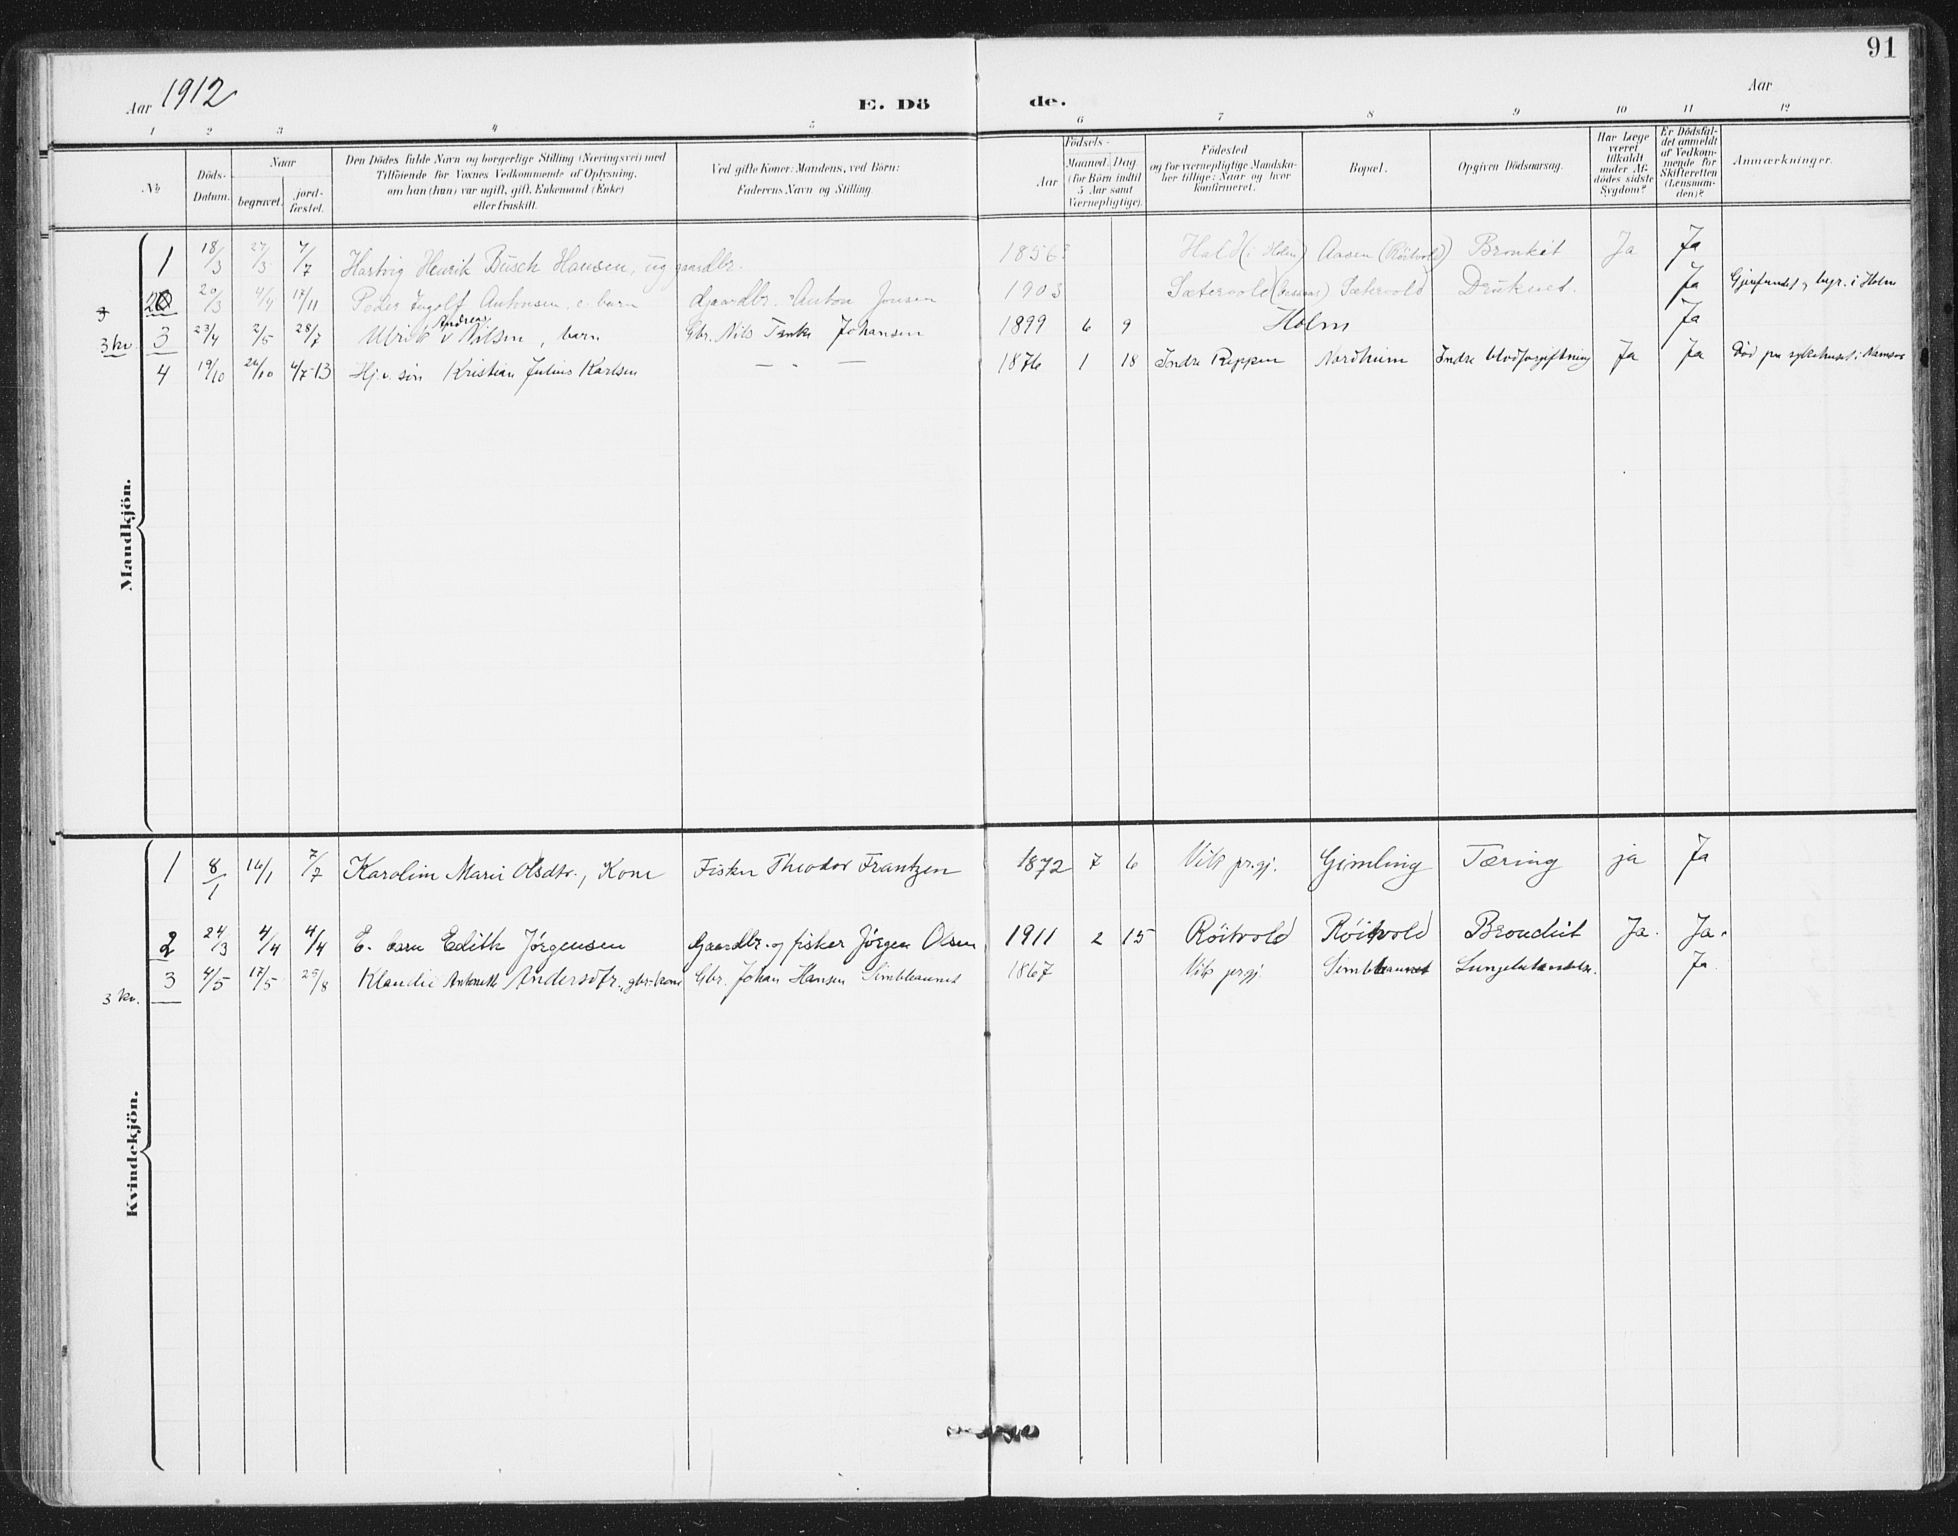 91
Aar 1912
E. Dö
de.
Aar
1 2 3 4 5 6 7 8 9 10 11 12
No
Döds-Datum.
Naar
begravet.
jord-fæstet.
Den Dödes fulde Navn og borgerlige Stilling (Næringsvei) med
Tilföiende for Voxnes Vedkommende af Oplysning,
om han (hun) var ugift, gift, Enkemand (Enke)
eller fraskilt.
Ved gifte Koner: Mandens, ved Börn:
Faderens Navn og Stilling.
Födsels-
Aar
Maaned. Dag
(for Börn indtil
5 Aar samt
Værnepligtige).
Födested
og for værnepligtige Mandska-
ber tillige: Naar og hvor
konfirmeret.
Bopæl.
Opgiven Dödsaarsag.
Har Læge
været
tilkaldt
under Af-
dödes sidste
Sygdom?
Er Dödsfal-
det anmeldt
af Vedkom-
mende for
Skifteretten
(Lensman-
den)?
Anmærkninger.
Mandkjön.
1 18/3 27/3 7/7 Hartvig Henrik Busch Hansen, ug gaardbr. 1856 Hald (i Holm) Aasen (Röitvold) Bronkit Ja Ja
2 20/3 4/4 17/11 Peder Ingolf Antonsen e. barn Gaardbr. Anton Jonsen 1903 Sætervold Sætervold Druknet. Ja Gjenfundet og begr. i Holm
3 kv. 3 23/4 2/5 28/7 Ulrik Andreas Nilsen, barn Gbr. Nils Johansen 1899 6 9 Holm Ja
4 19/10 26/10 4/7-13 Hj.v. søn Kristian Julius Karlsen — - — 1876 1 18 Indre Reppen Nordhuus Indre blodforgiftning Ja Ja Død paa sykehuset i Namsos
Kvindekjön.
1 8/1 16/1 7/7 Karoline Marie Olsdtr., Kone Fisker Theodor Frantzen 1872 7 6 Vik pr.gj. Gimling Tæring ja Ja
2 24/3 4/4 4/4 E. barn Edith Jørgensen Gaardbr. og fisker Jørgen Olsen 1911 2 15 Röitvold Röitvold Bronchit Ja. Ja.
3 kv. 3 4/5 17/5 25/8 Klaudie Antonette Andersdtr., gbr-kone Gbr. Johan Hansen Simblaunet 1867 Vik pr.gj. Simblaunet Lungebetændelse. Ja.